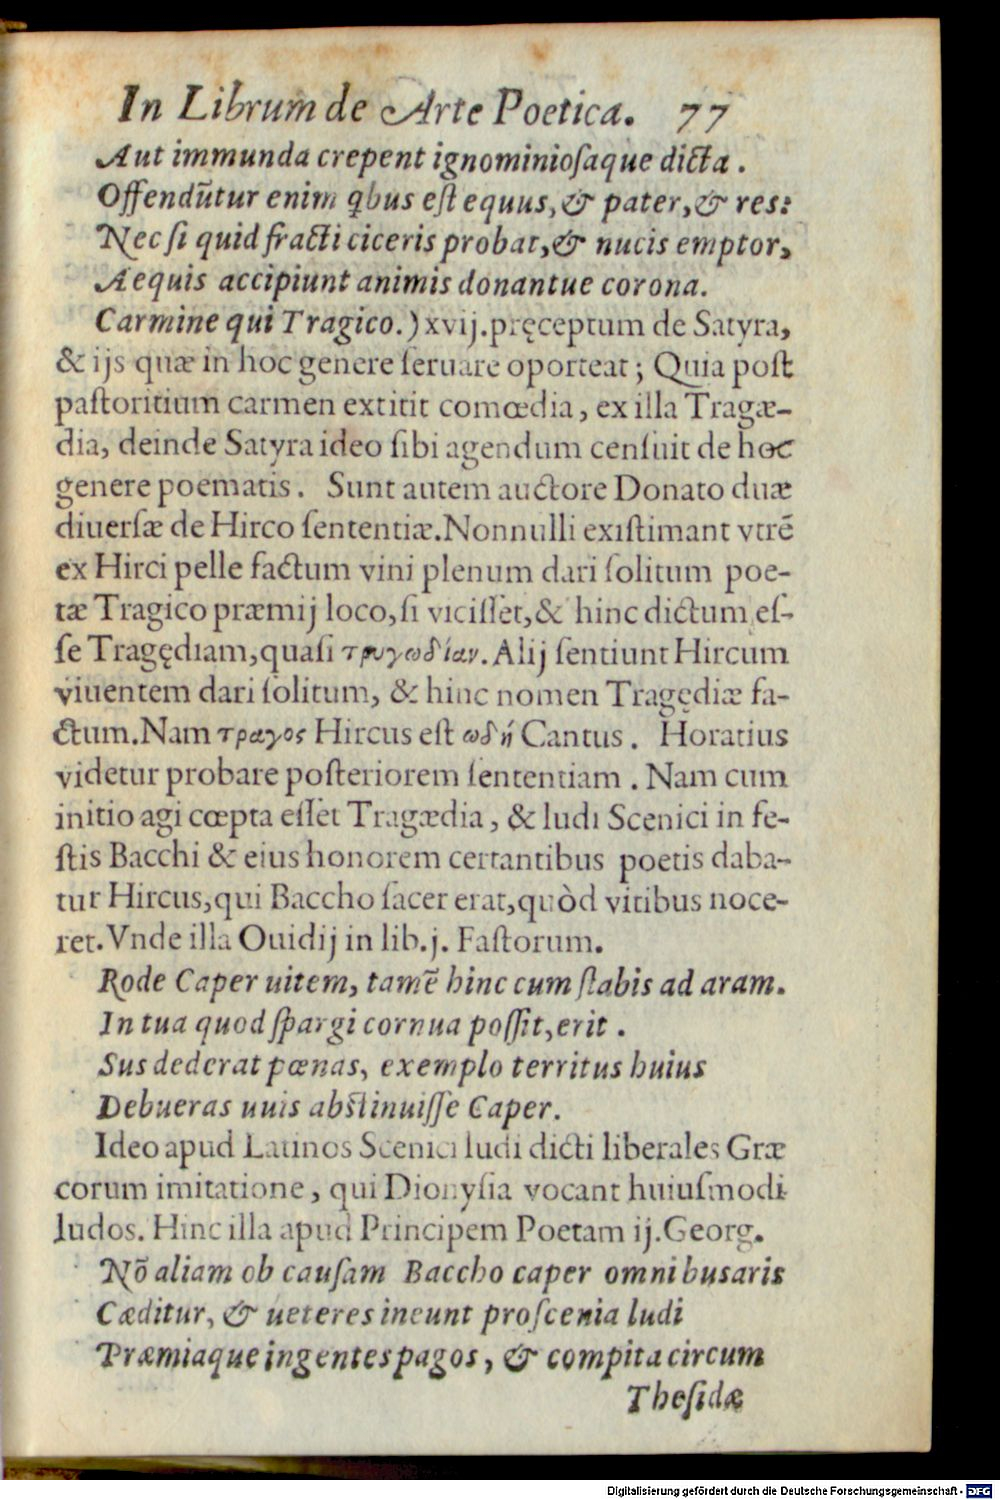 In Librum de Arte Poetica. 77
Aut immunda crepent ignominioſaque dicta.
Offendūtur enim qbus eſt equus, & pater, & res:
Nec ſi quid fracti ciceris probat, & nucis emptor,
Aequis accipiunt animis donantue corona.
Carmine qui Tragico.) xvij. pręceptum de Satyra,
& ijs quæ in hoc genere ſeruare oporteat; Quia poſt
paſtoritium carmen extitit comœdia, ex illa Tragæ-
dia, deinde Satyra ideo ſibi agendum cenſuit de hoc
genere poematis. Sunt autem auctore Donato duæ
diuerſæ de Hirco ſententiæ. Nonnulli exiſtimant vtrē
ex Hirci pelle factum vini plenum dari ſolitum poe-
tæ Tragico præmij loco, ſi viciſſet, & hinc dictum eſ-
ſe Tragędiam, quaſi τρυγωδίαν. Alij ſentiunt Hircum
viuentem dari ſolitum, & hinc nomen Tragędiæ fa-
ctum. Nam τραγος Hircus eſt ωδή Cantus. Horatius
videtur probare poſteriorem ſententiam. Nam cum
initio agi cœpta eſſet Tragædia, & ludi Scenici in fe-
ſtis Bacchi & eius honorem certantibus poetis daba-
tur Hircus, qui Baccho ſacer erat, quòd vitibus noce-
ret. Vnde illa Ouidij in lib. j. Faſtorum.
Rode Caper uitem, tamē hinc cum ſtabis ad aram.
In tua quod ſpargi cornua poſſit, erit.
Sus dederat pœnas, exemplo territus huius
Debueras uuis abſtinuiſſe Caper.
Ideo apud Latinos Scenici ludi dicti liberales Græ
corum imitatione, qui Dionyſia vocant huiuſmodi
ludos. Hinc illa apud Principem Poetam ij. Georg.
Nō aliam ob cauſam Baccho caper omnibus aris
Cæditur, & ueteres ineunt proſcenia ludi
Præmiaque ingentes pagos, & compita circum
Theſidæ
Digitalisierung gefördert durch die Deutsche Forschungsgemeinschaft - DFG